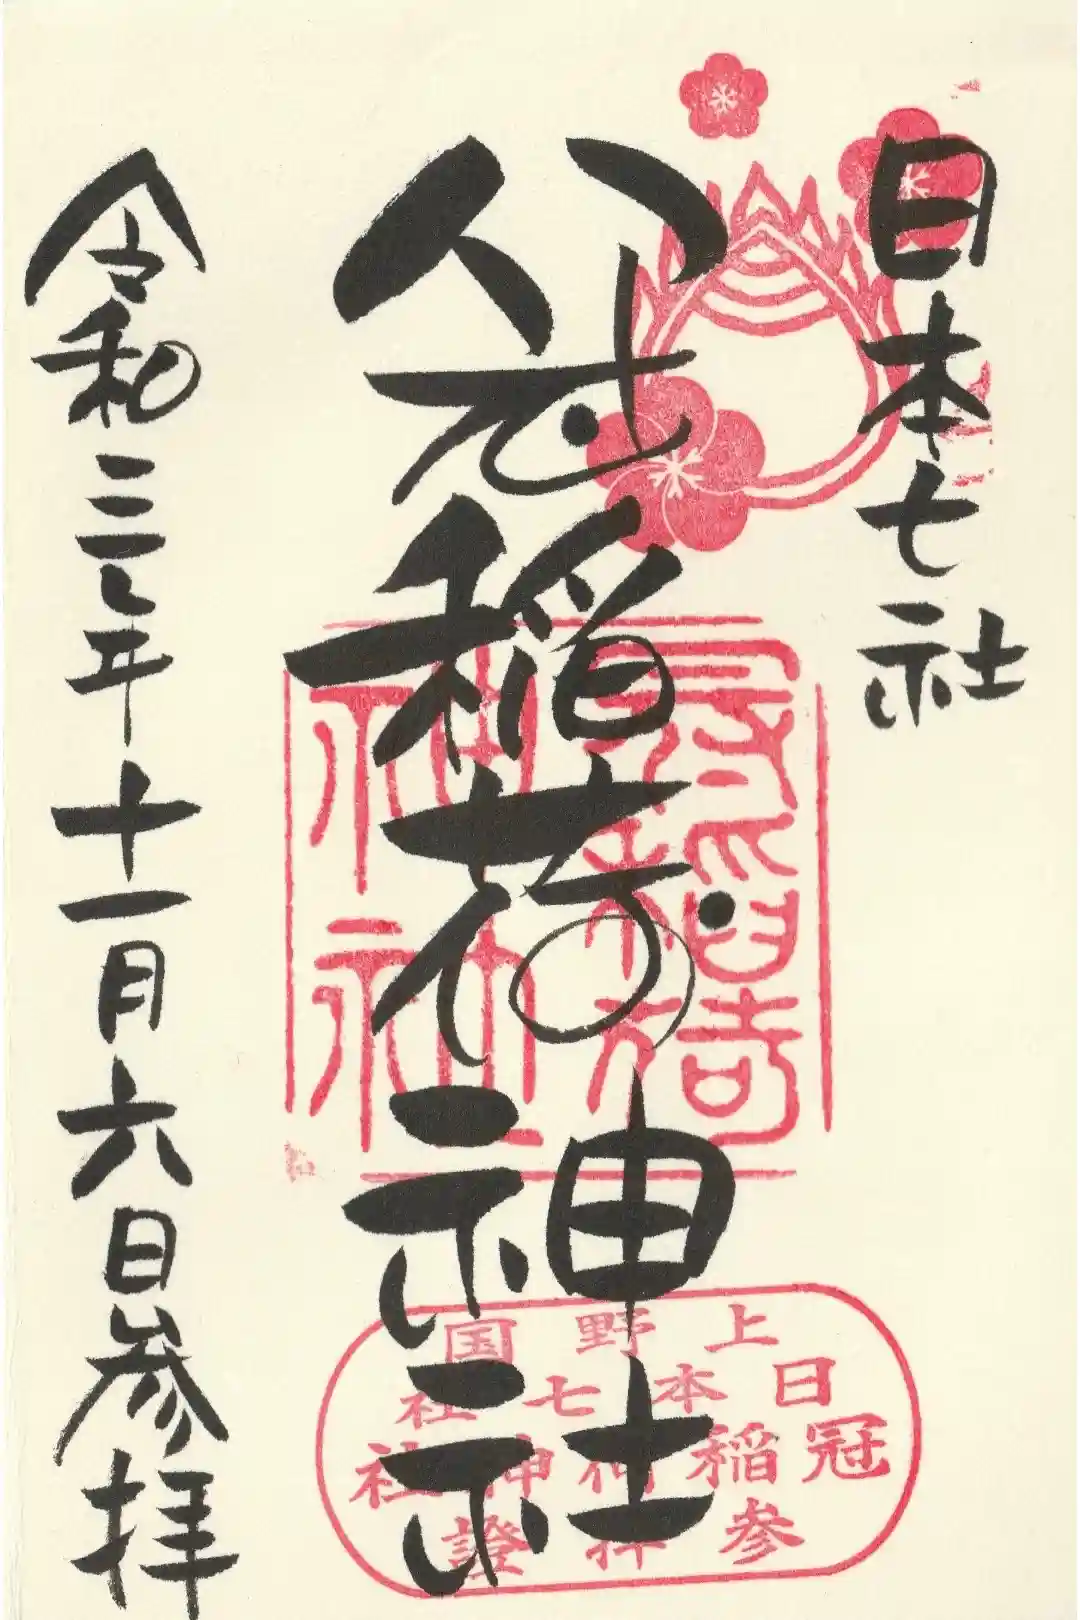 日本七社
冠稲荷神社
冠稲荷
神社
上野国
日本七社
冠稲荷神社
参拝證
令和三年十一月六日参拝